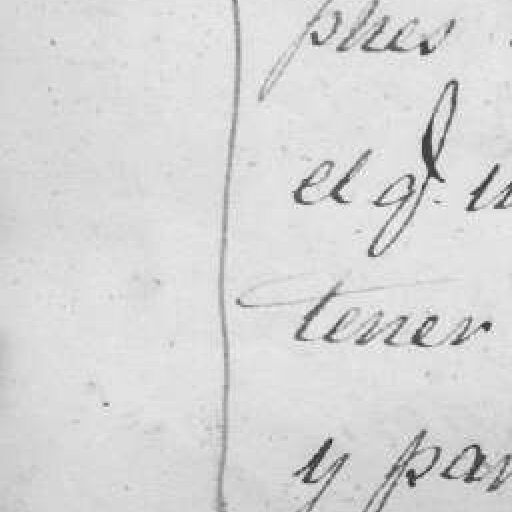 phes
el q.
tener
y par